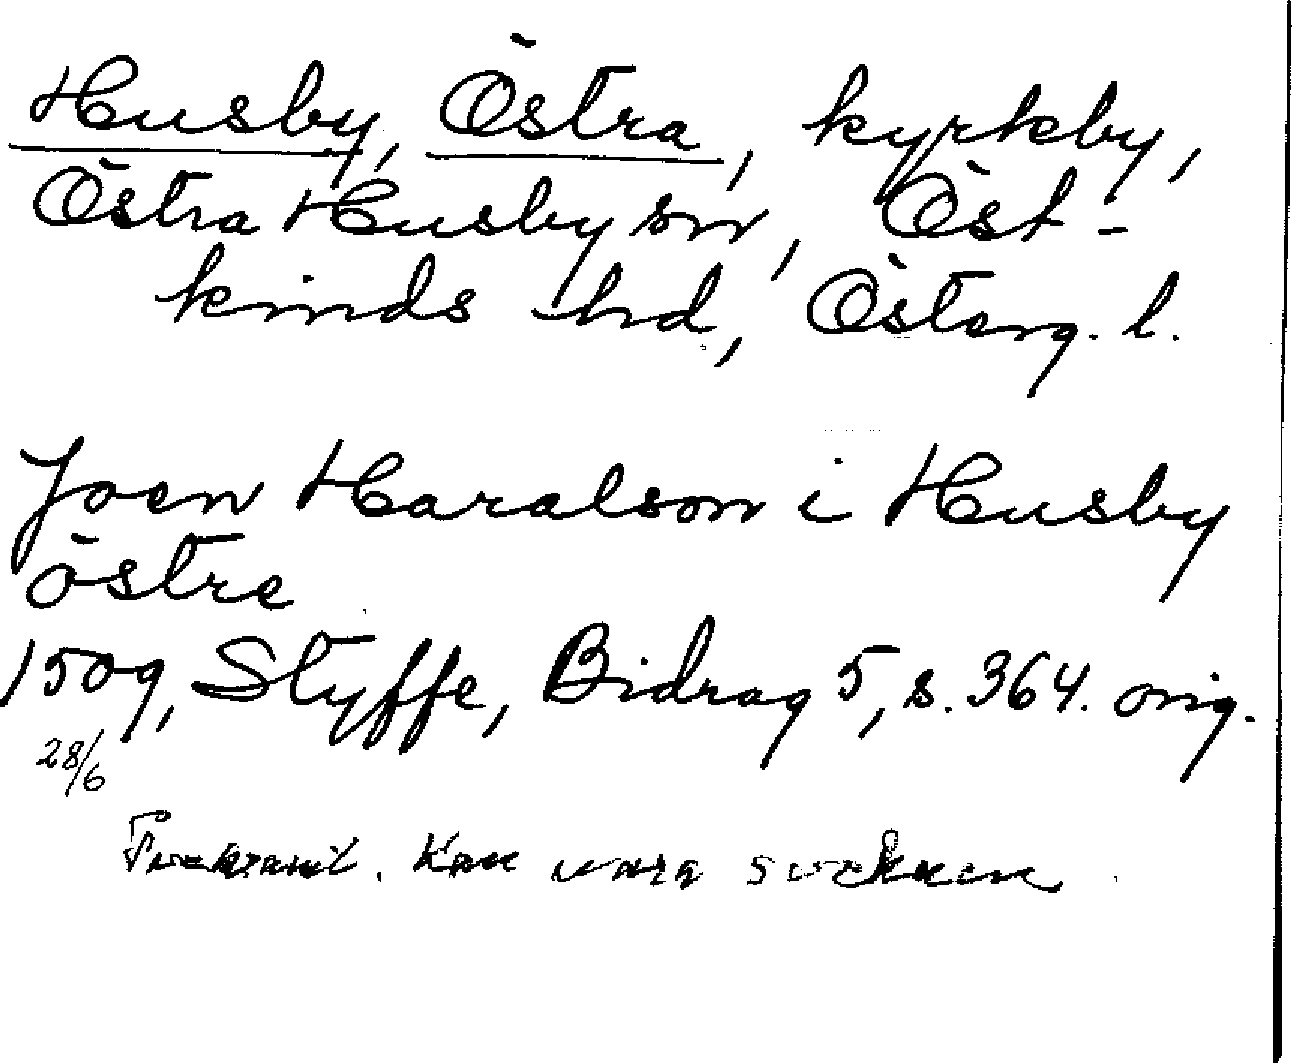 Husby, Östra, kyrkby,
Östra Husby sn, Öst-
kinds hd, Österg. l.
Joen Haralson i Husby
östre
1509, Styffe, Bidrag 5, s. 364. orig.
28/6
Tveksamt. Kan vara socknen